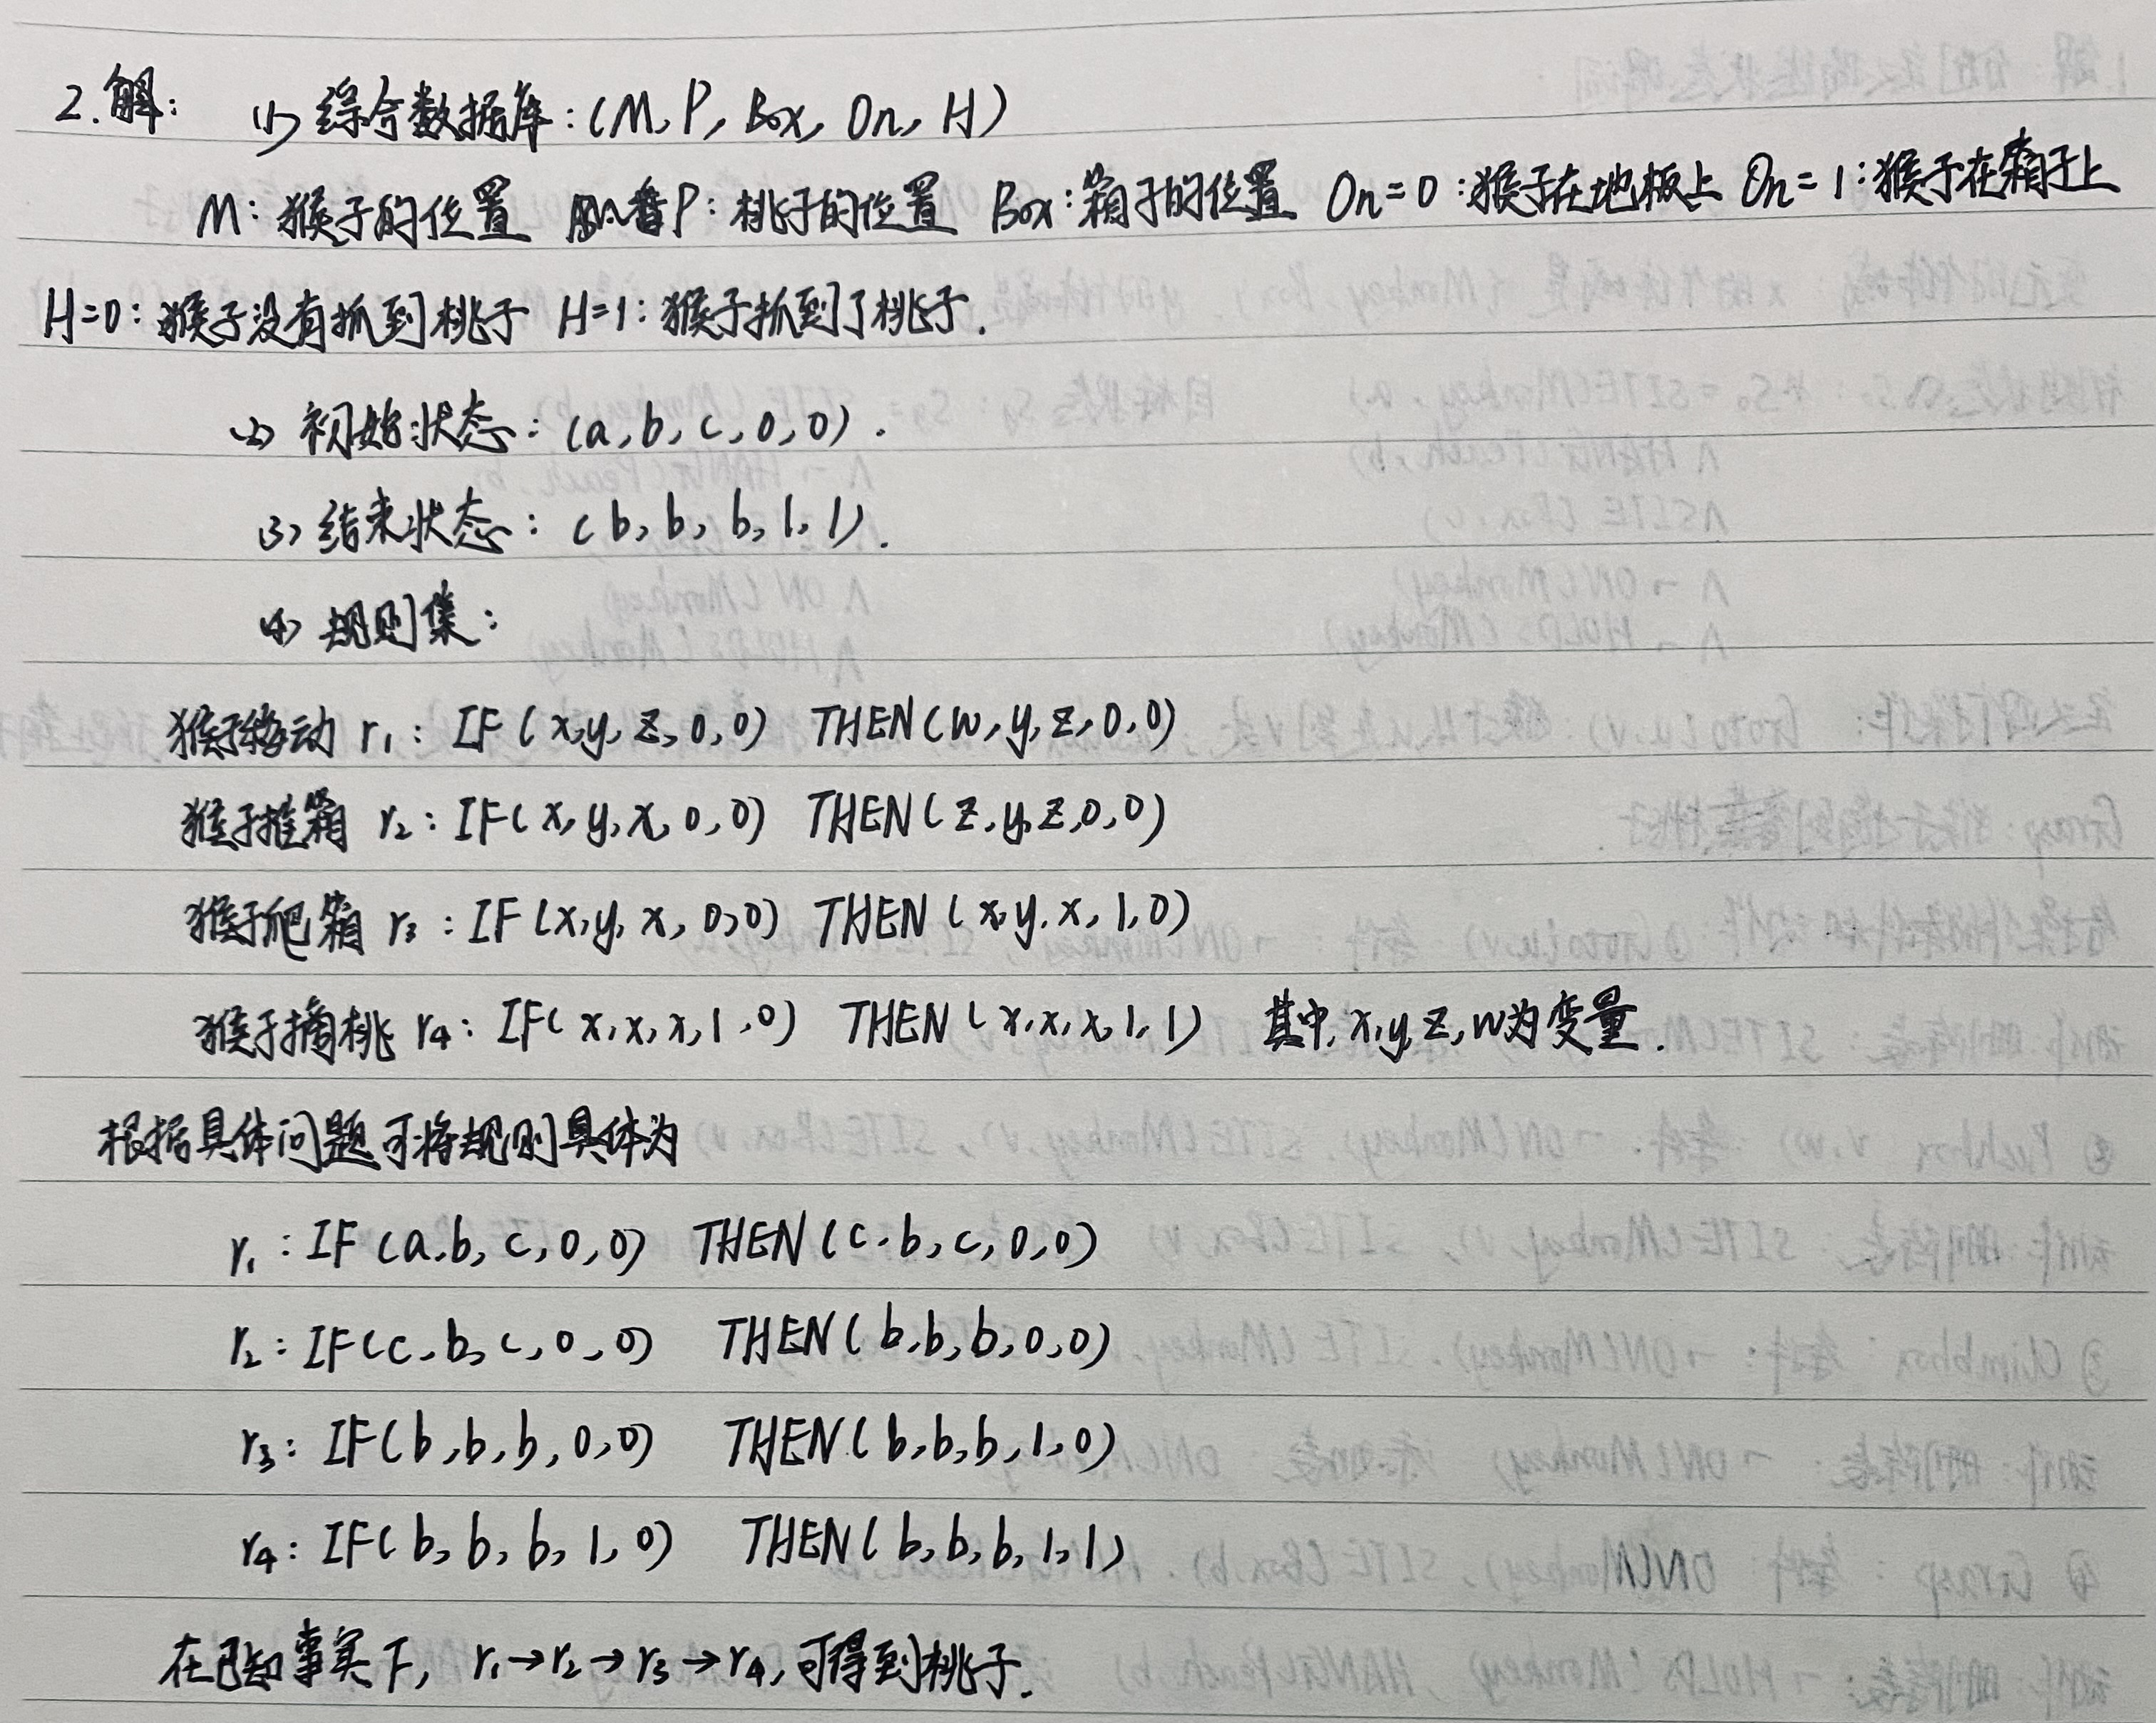 2.解: (1) 综合数据库: (M, P, Box, On, H)
M: 猴子的位置 P: 桃子的位置 Box: 箱子的位置 On=0: 猴子在地板上 On=1: 猴子在箱子上
H=0: 猴子没有抓到桃子 H=1: 猴子抓到了桃子.
(2) 初始状态: (a, b, c, 0, 0).
(3) 结束状态: (b, b, b, 1, 1).
(4) 规则集:
猴子移动 r₁: IF (x, y, z, 0, 0) THEN (w, y, z, 0, 0)
猴子推箱 r₂: IF (x, y, x, 0, 0) THEN (z, y, z, 0, 0)
猴子爬箱 r₃: IF (x, y, x, 0, 0) THEN (x, y, x, 1, 0)
猴子摘桃 r₄: IF (x, x, x, 1, 0) THEN (x, x, x, 1, 1) 其中, x, y, z, w为变量.
根据具体问题可将规则具体为
r₁: IF (a, b, c, 0, 0) THEN (c, b, c, 0, 0)
r₂: IF (c, b, c, 0, 0) THEN (b, b, b, 0, 0)
r₃: IF (b, b, b, 0, 0) THEN (b, b, b, 1, 0)
r₄: IF (b, b, b, 1, 0) THEN (b, b, b, 1, 1)
在已知事实下, r₁→r₂→r₃→r₄, 可得到桃子.